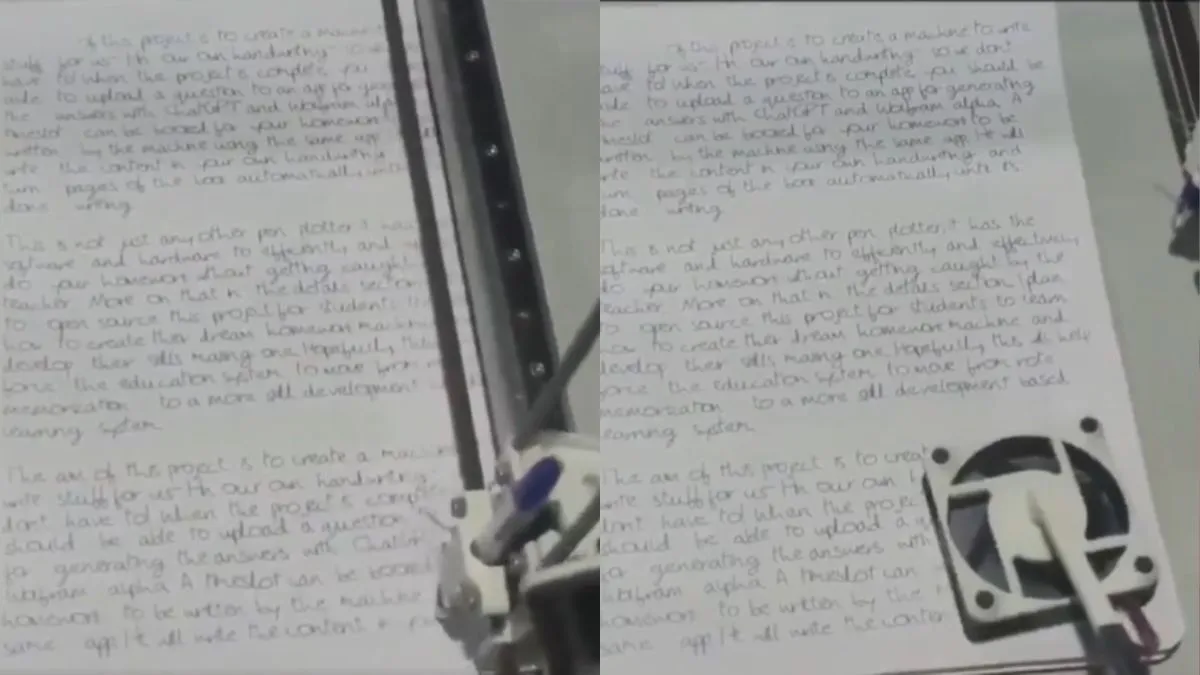 of this project is to create a machine
stuff for us In our own handwriting so we
have to! When the project is complete you
able to upload a question to an app for gene
the answers with ChatGPT and Wolfram alp
timeslot can be booked for your homework
written by the machine using the same app
write the content in your own handwriting
turn pages of the book automatically until
done writing
This is not just any other pen plotter, it has
software and hardware to efficiently and
do your homework without getting caught
teacher More on that in the details section
to open source this project for students
how to create their dream homework machine
develop their skills making one Hopefully, this
force the education system to move from
memorization to a more skill development
learning system
The aim of this project is to create a machine
write stuff for us In our own handwriting
don't have to! When the project is comple
should be able to upload a question
for generating the answers with Chat
Wolfram alpha A timeslot can be booked
homework to be written by the machine
same app It will write the content in
of this project is to create a machine to write
stuff for us In our own handwriting so we don't
have to! When the project is complete you should be
able to upload a question to an app for generating
the answers with ChatGPT and Wolfram alpha A
timeslot can be booked for your homework to be
written by the machine using the same app It will
write the content in your own handwriting and
turn pages of the book automatically until it's
done writing
This is not just any other pen plotter, it has the
software and hardware to efficiently and effectively
do your homework without getting caught by the
teacher More on that in the details section I plan
to open source this project for students to learn
how to create their dream homework machine and
develop their skills making one Hopefully, this will help
force the education system to move from rote
memorization to a more skill development based
learning system
The aim of this project is to creat
write stuff for us In our own
don't have to! When the project
should be able to upload a
for generating the answers with
Wolfram alpha A timeslot can
homework to be written by the
same app It will write the conten